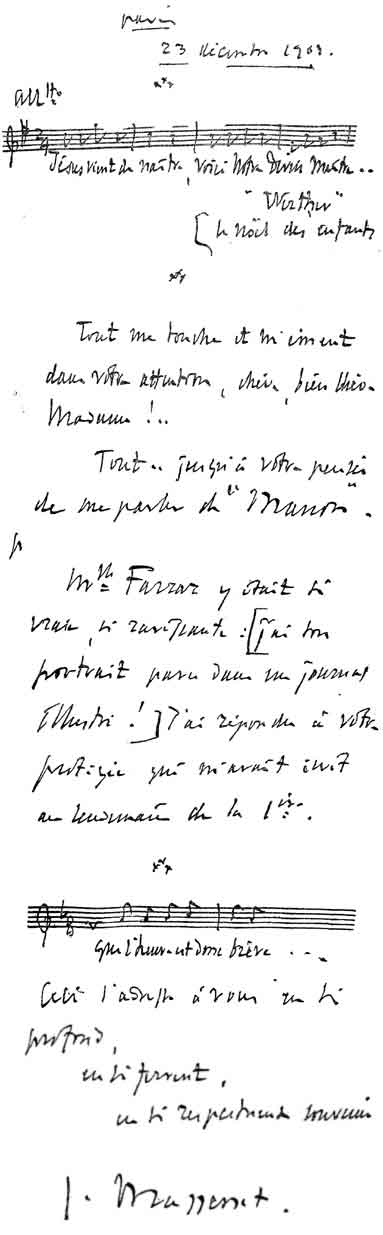 Paris
23 décembre 1908.
all^tto
Jésus vient de naître, voici Notre Divin Maître..
"Werther"
[le Noël des enfants
Tout me touche et m'émeut
dans votre attention, chère, bien chère
Madame !..
Tout.. jusqu'à votre pensée
de me parler de "Manon".
M^lle Farrar y était si
vraie, si ravissante : [j'ai son
portrait paru dans un journal
illustré !] J'ai répondu à votre
protégée qui m'avait écrit
au lendemain de la 1^ère.
Que l'heure est donc brève ...
Ceci s'adresse à vous en si
profond,
en si fervent,
en si respectueux souvenir
J. Massenet.